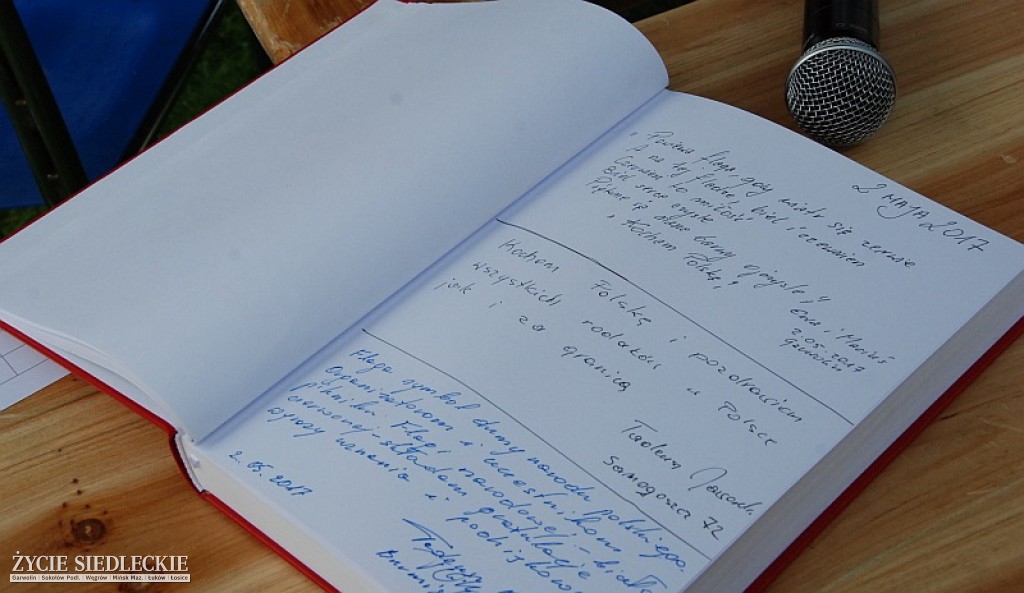 2 MAJA 2017
"Powiewa flaga, gdy wiatr się zerwie
A na tej fladze, biel i czerwień
Czerwień to miłość
Biel serce czyste
Piękne są nasze barwy ojczyste"
"Kocham Polskę"
Ewa i Mariusz
2.05.2017
Kocham Polskę i pozdrawiam
wszystkich rodaków w Polsce
jak i za granicą
Tadeusz
Samogoszcz 72
Flaga symbol dumy narodu polskiego.
Organizatorom i uczestnikom
pikniku Flagi narodowej - biało
czerwonej - składam gratulacje
wyrazy uznania i
2.05.2017
ŻYCIE SIEDLECKIE
Garwolin | Sokołów Podl. | Węgrów | Mińsk Maz. | Łuków | Łosice